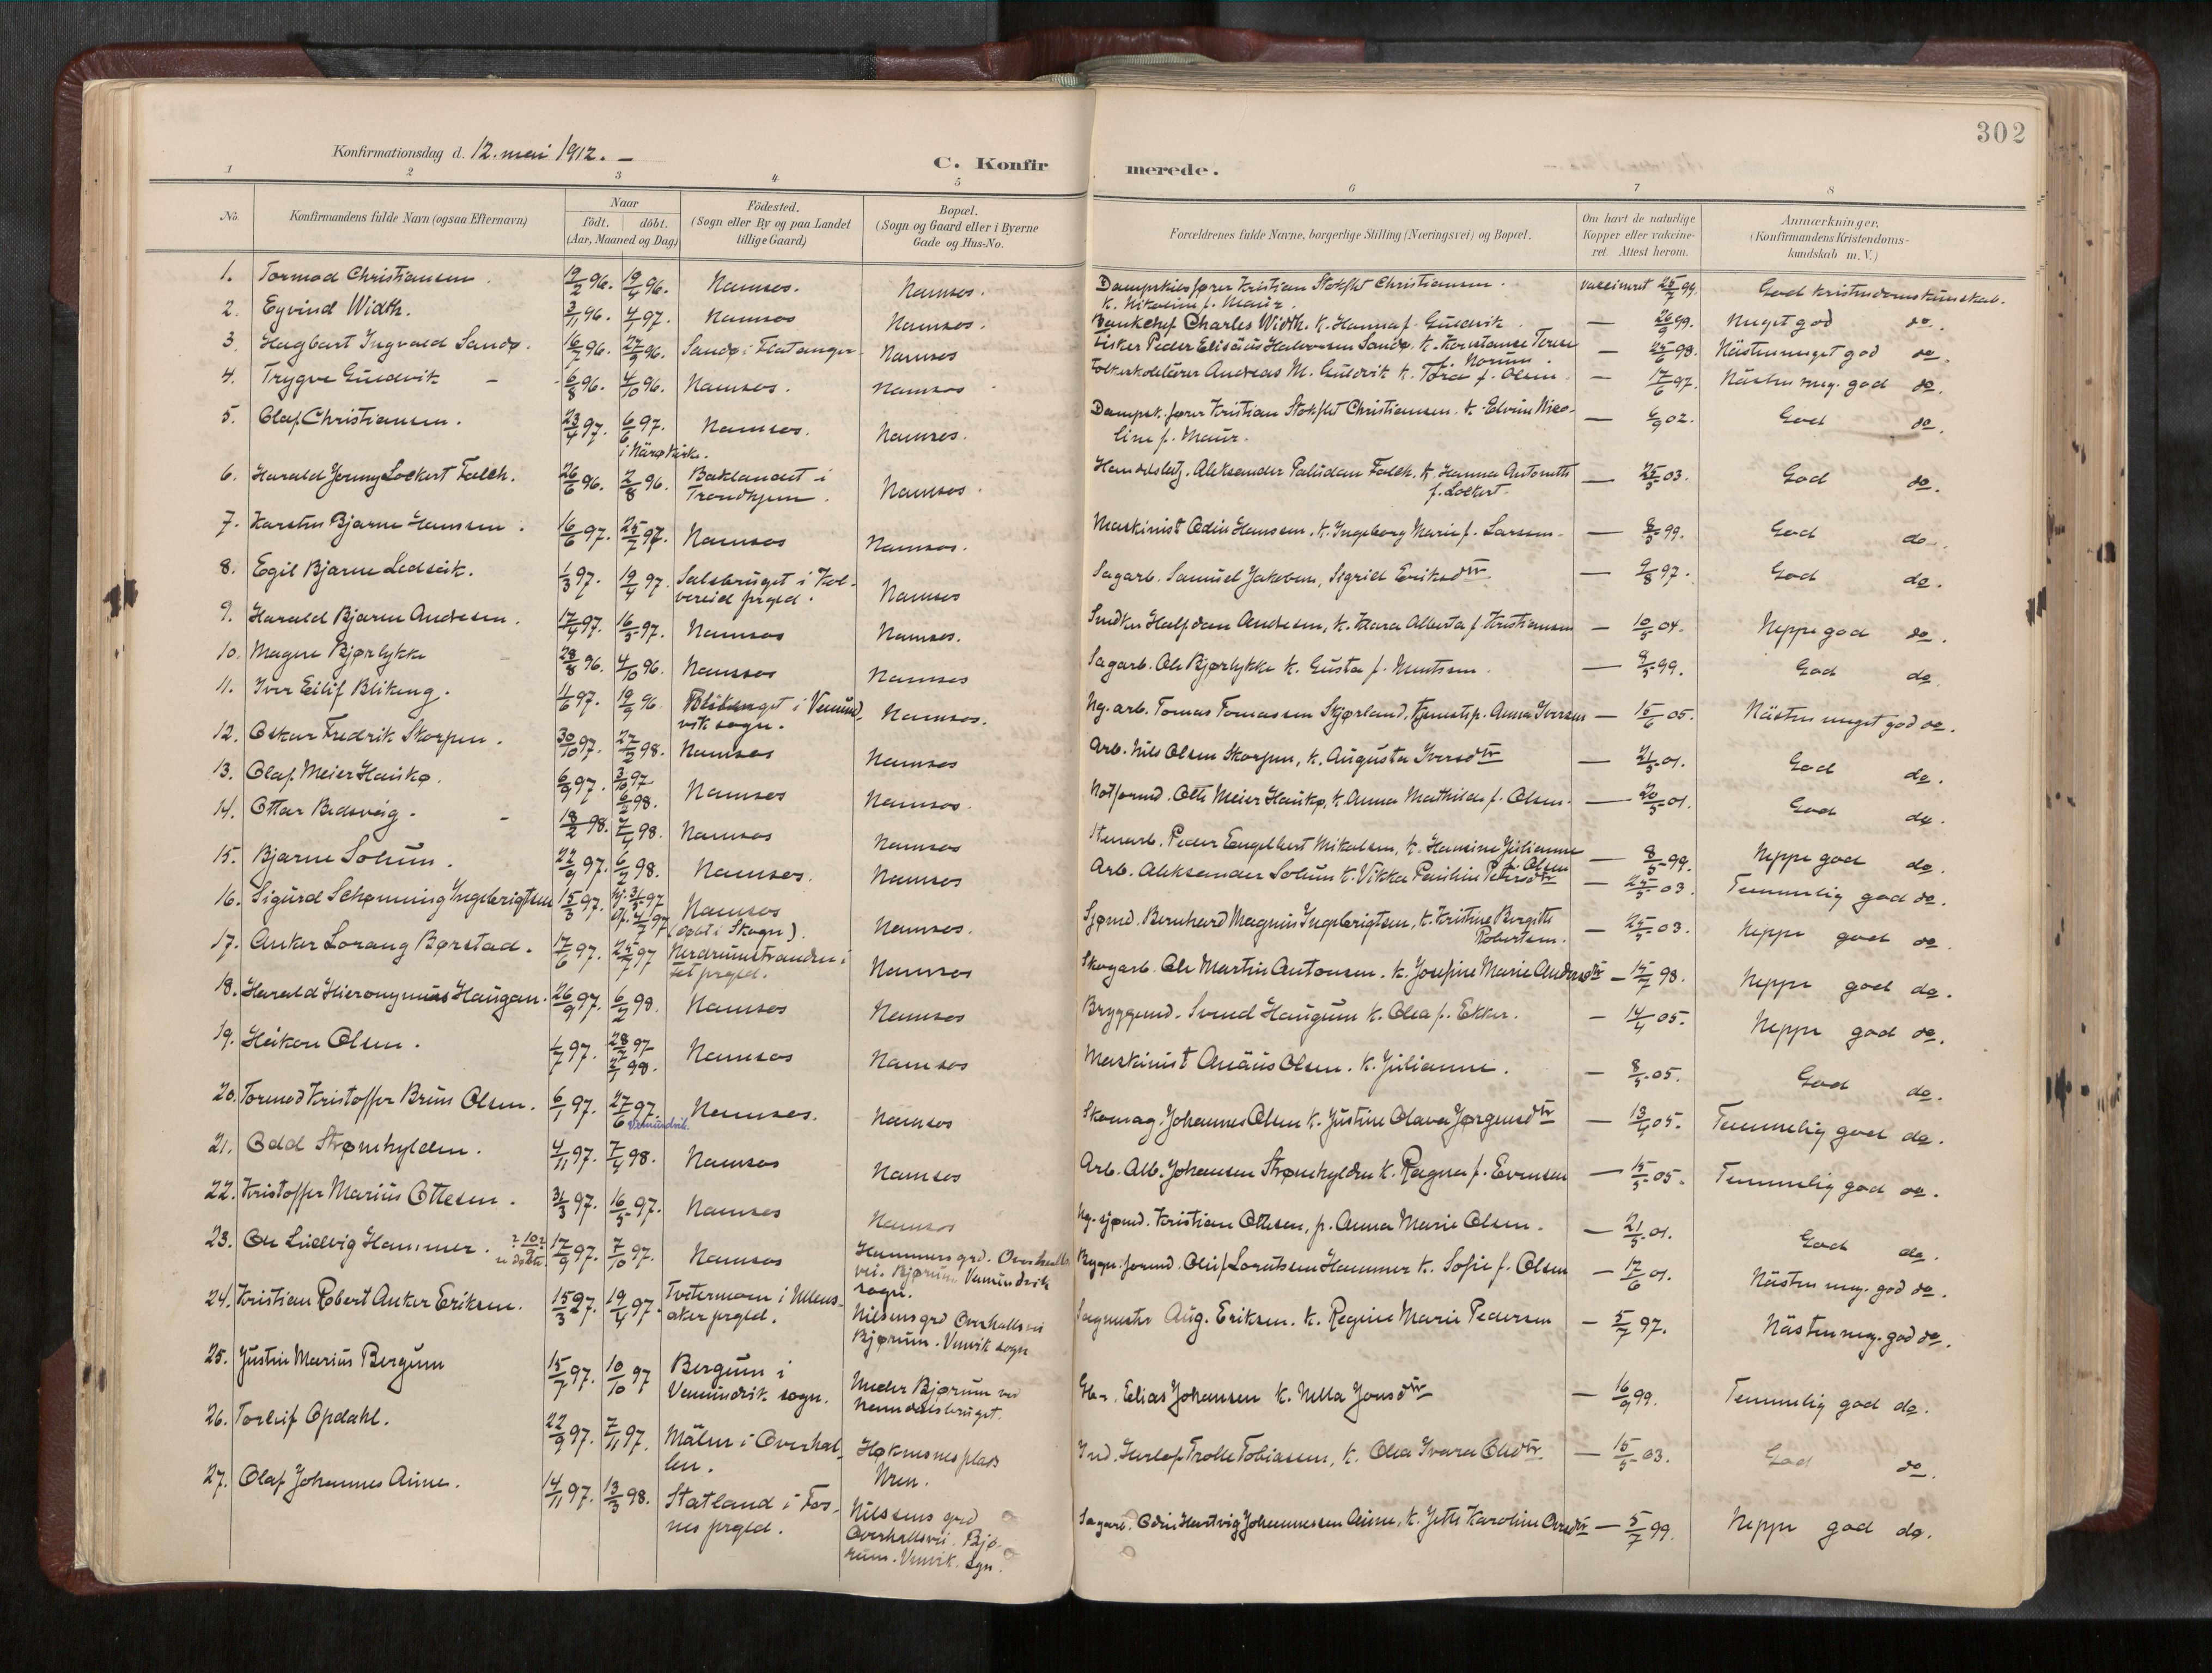 302
Konfirmationsdag d. 12. mai 1912. –
C. Konfirmerede.
1 2 3 4 5 6 7 8
No. Konfirmandens fulde Navn (ogsaa Efternavn) Naar födt. döbt. (Aar, Maaned og Dag) Födested. (Sogn eller By og paa Landet tillige Gaard) Bopæl. (Sogn og Gaard eller i Byerne Gade og Hus-No. Forældrenes fulde Navne, borgerlige Stilling (Næringsvei) og Bopæl. Om havt de naturlige Kopper eller vakcineret. Attest herom. Anmærkninger. (Konfirmandens Kristendomskundskab m.V.)
1. Tormod Christiansen 19/2 96. 19/4 96. Namsos. Namsos. Dampskibsfører Kristian Stokflet Christiansen. K. Nikoline f. Maur. vaccineret 25/7 99. God kristendomskunskab.
2. Eyvind Width. 3/11 96. 4/1 97. Namsos Namsos. Bankchef Charles Width. K. Hanna f. Guldvik — 26/9 99. Meget god do.
3. Hagbart Ingvald Sandø. 16/7 96. 27/9 96. Sandø i Flatanger. Namsos Fisker Peder Elisäus Halvorsen Sandø. K. Konstanse Terese f. Norum. — 25/6 98. Nästen meget god do.
4. Trygve Guldvik – 6/8 96. 4/10 96. Namsos. Namsos Folkeskolelärer Andreas M. Guldvik K. Tora f. Olsen. — 17/6 97. Nästen meg. god do.
5. Olaf Christiansen. 23/4 97. 6/6 97. i Närø kirke. Namsos. Namsos. Dampsk. fører Kristian Stokflet Christiansen. K. Edvin Nicoline f. Maur. — 6/9 02. God do.
6. Harald Jenny Lockert Falch. 26/6 96. 2/8 96. Baklandet i Trondhjem. Namsos. Handelsbetj. Aleksander Paludan Falch. K. Hanna Antonette f. Lockert. — 25/5 03. God do.
7. Karsten Bjarne Hansen. 16/6 97. 25/7 97. Namsos Namsos. Maskinist Odin Hansen. K. Ingeborg Marie f. Larsen. — 8/5 99. God do.
8. Egil Bjarne Ledseik. 1/3 97. 19/4 97. Salsbruget i Kolvereid prgld. Namsos Sagarb. Samuel Jakobsen, Sigrid Eriksdtr — 9/8 97. God do.
9. Harald Bjarne Andesen. 17/4 97. 16/5 97. Namsos Namsos. Snedker Halfdan Andesen, K. Klara Alberta f. Kristiansen — 10/5 04. Neppe god do.
10. Magne Bjørlykke 28/8 96. 4/10 96. Namsos Namsos Sagarb. Ole Bjørlykke K. Gusta f. Mentsen. — 8/5 99. God do
11. Iver Eilif Blikeng. 4/6 97. 19/9 96. Blikenget i Vemundvik sogn. Namsos. Ug. arb. Tomas Tomassen Skjørland, tjenestep. Anna Iversen — 15/6 05. Nästen meget god do.
12. Oskar Fredrik Skorpen. 30/10 97. 27/2 98. Namsos Namsos Arb. Nils Olsen Skorpen, K. Augusta Iversdtr — 21/5 01. God do.
13. Olaf Meier Haukø. 6/9 97. 3/10 97 6/2 98. Namsos Namsos. Notformd. Otto Meier Haukø, K. Anna Mathilde f. Olsen. — 20/5 01. God do.
14. Ottar Bedsvåg. – 18/2 98. 7/4 98. Namsos Namsos Stenarb. Peder Engelbert Mikalsen, K. Hansine Julianne f. Olsen — 8/5 99. Neppe god do.
15. Bjarne Solum. 22/9 97. 6/2 98. Namsos. Namsos Arb. Aleksander Solum K. Vikka Pauline Petersdtr — 25/5 03. Temmelig god do.
16. Sigurd Schønning Ingebrigtsen 15/3 97. Hj. 31/5 97 Of. 4/7 97 Namsos (døbt i Skogn). Namsos. Sjømd. Bernhard Magnus Ingebrigtsen, K. Kristine Bergitte Robertsen. — 25/5 03. Neppe god do
17. Anker Lorang Børstad. 17/6 97. 25/7 97 Nerdrumstranden i Fet prgld. Namsos Skogarb. Ole Martin Antonsen. K. Josefine Marie Andersdtr — 15/7 98. Neppe god do.
18. Harald Hieronymus Haugan. 26/9 97. 6/2 98. Namsos Namsos Bryggemd. Svend Haugum K. Olea f. Ekker. — 14/4 05. Neppe god do.
19. Håkon Olsen. 1/7 97. 28/7 97 2/1 98. Namsos Namsos Maskinist Anäus Olsen. K. Julianne. — 8/5 05. God do.
20. Tormod Kristoffer Bruns Olsen. 6/1 97. 27/6 97. Vemundvik. Namsos. Namsos Skomag. Johannes Olsen K. Justine Olava Jørgensdtr — 13/4 05. Temmelig god do.
21. Odd Strømhylden. 4/11 97. 7/4 98. Namsos Namsos Arb. Alb. Johansen Strømhylden K. Ragna f. Evensen — 15/5 05. Temmelig god do.
22. Kristoffer Marius Ottesen. 31/3 97. 16/5 97. Namsos Namsos Ug. sjømd. Kristian Ottesen, p. Anna Marie Olsen. — 21/5 01. God do.
23. Ole Ludvig Hammer. 17/9 97. 7/10 97. Namsos Hammers grd. Overhalls vei. Bjørum Vemundvik sogn. Brygg. formd. Oluf Lorentsen Hammer K. Sofie f. Olsen — 17/6 01. Nästen meg. god do.
24. Kristian Robert Anker Eriksen. 15/3 97. 19/4 97. Tvetermoen i Ullensaker prgld. Nilsens grd Overhallsvei Bjørum. Vmvik sogn Sagmester Aug. Eriksen. K. Regine Marie Pedersen — 5/7 97. Nästen meg. god do.
25. Justin Marius Bergum 15/7 97. 10/10 97 Bergum i Vemundvik sogn. Under Bjørum ved Namdalsbruget. Gbr. Elias Johansen K. Nella Jonsdtr — 16/9 99. Temmelig god do.
26. Torleif Opdahl. 22/9 97. 7/11 97. Mälen i Overhallen. Høknesnesplads Vren. Ind. Herlof Trolle Tobiasen, K. Olea Ivara Olsdtr — 15/5 03. God do.
27. Olaf Johannes Aune. 14/11 97. 13/3 98. Statland i Fosnes prgld. Nilsens grd Overhallsvei. Bjørum. Vmvik. sgn. Sagarb. Odin Hartvig Johannessen Aune, K. Jette Karoline Oresdtr — 5/7 99. Neppe god do.